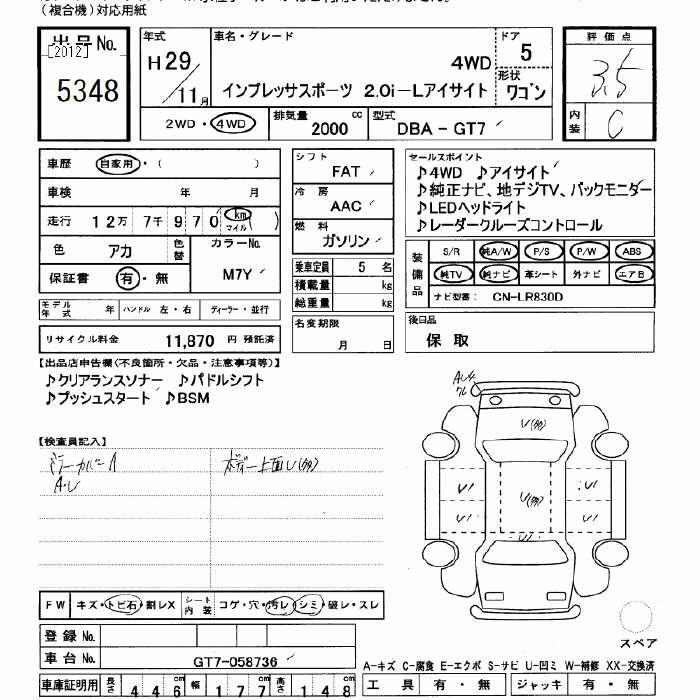 （複合機）対応用紙
出品No.
[2012]
5348
年式
H29/11月
車名・グレード
4WD
インプレッサスポーツ 2.0i-Lアイサイト
ドア
5
形状
ワゴン
評価点
3.5
内装
C
2WD・4WD
排気量
2000 cc
型式
DBA - GT7
車歴 自家用・( )
車検 年 月
走行 12万 7千 9 7 0 ( km マイル )
色 アカ 色替
カラーNo.
M7Y
保証書 有・無
モデル年式 年 ハンドル 左・右 ディーラー・並行
リサイクル料金 11,870 円 預託済
シフト
FAT
冷房
AAC
燃料
ガソリン
乗車定員 5 名
積載量 kg
総重量 kg
名変期限
月 日
セールスポイント
♪4WD ♪アイサイト
♪純正ナビ、地デジTV、バックモニター
♪LEDヘッドライト
♪レーダークルーズコントロール
装備品
S/R 純A/W P/S P/W ABS
純TV 純ナビ 革シート 外ナビ エアB
ナビ型番: CN-LR830D
後日品
保 取
【出品店申告欄(不良箇所・欠品・注意事項等)】
♪クリアランスソナー ♪パドルシフト
♪プッシュスタート ♪BSM
【検査員記入】
ミラーカバーA ボデー上面U(多)
A・U
U(多)
U1 U(多) U1
U1 U1
U1
FW キズ・トビ石・割レX シート内装 コゲ・穴・汚レ・シミ・破レ・スレ
登録No.
車台No. GT7-058736
車庫証明用 長さ 446cm 幅 177cm 高さ 148cm
スペア
A-キズ C-腐食 E-エクボ S-サビ U-凹ミ W-補修 XX-交換済
工具 有・無 ジャッキ 有・無